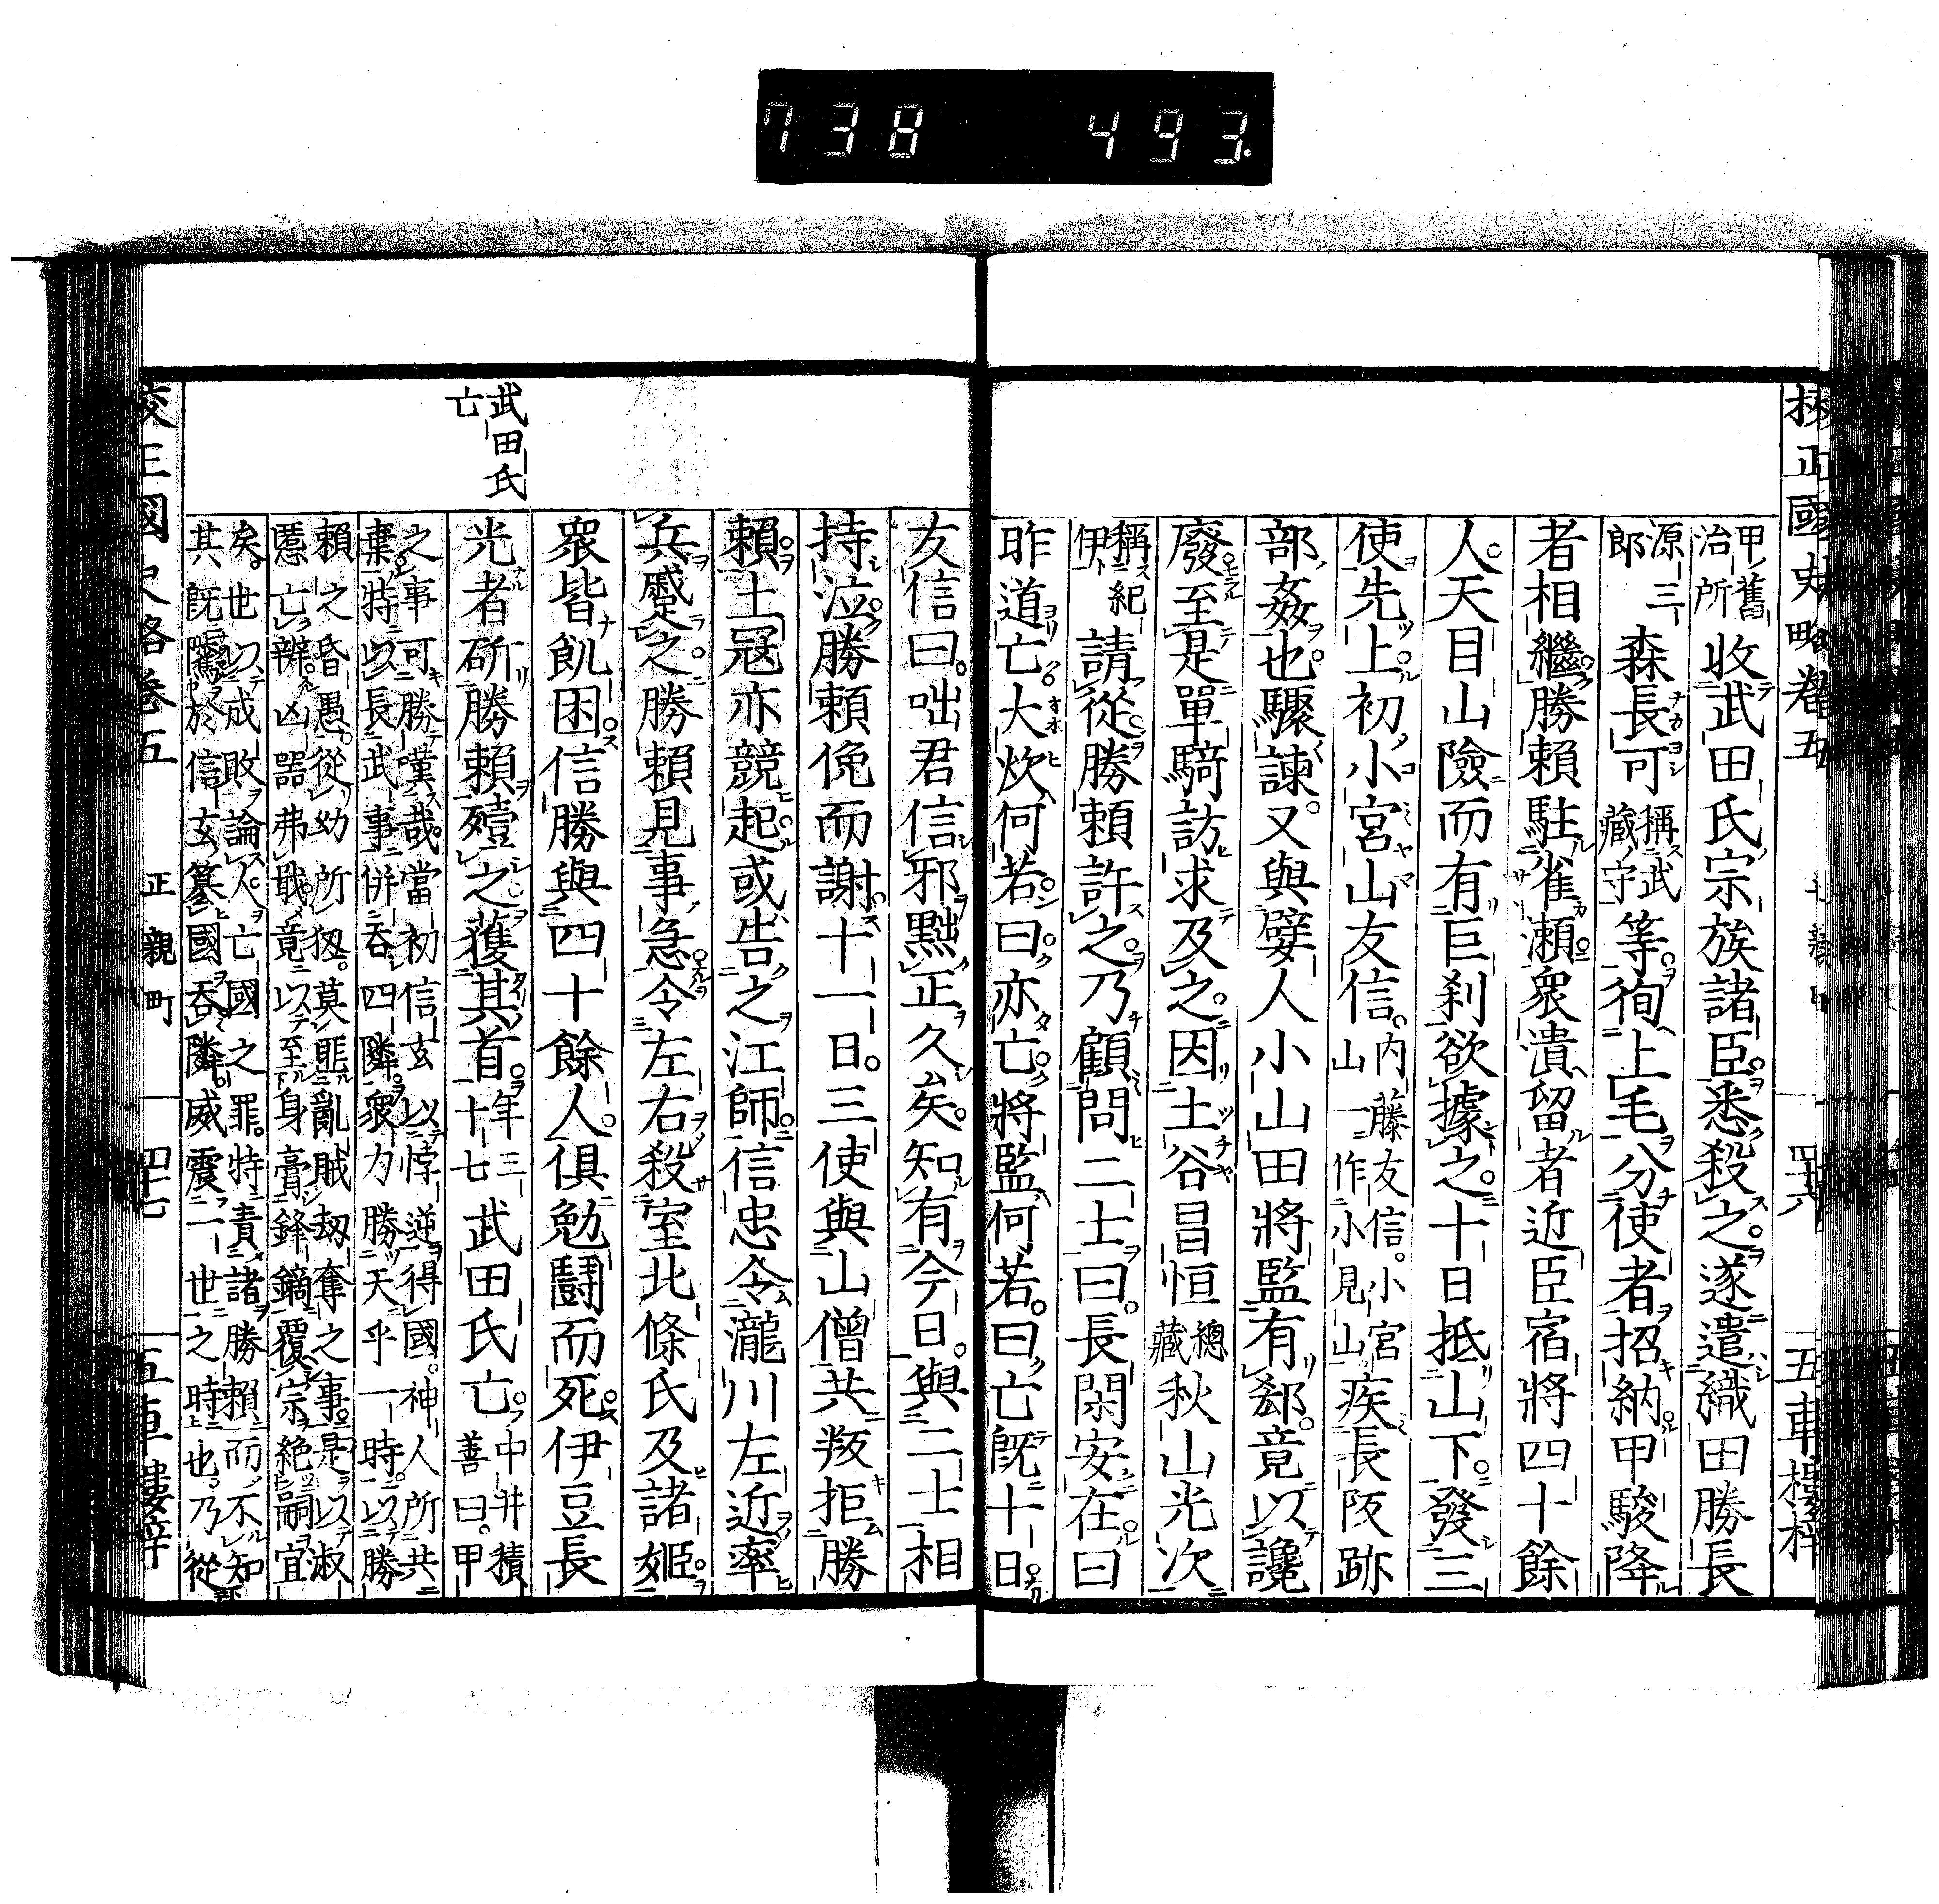 738 493.
挍正國史略卷五
四十六
五車樓梓
甲ノ舊治所收武田氏宗族諸臣。悉殺之。遂遣織田勝長
源三郎森長可稱武藏守等。徇上毛分使者招納甲駿降
者相繼。勝賴駐雀瀨衆潰留者近臣宿將四十餘
人。天目山險而有巨刹欲據之。十日抵山下。發三
使先上初小宮山友信。內藤友信。小宮山一作小見山疾長阪跡
部姦也驟諫。又與嬖人小山田將監有郄。竟以讒
廢至是單騎訪求及之。因土谷昌恒總藏秋山光次
稱紀伊請從勝賴許之。乃顧問二士曰。長閑安在曰
昨道亡。大炊何若。曰亦亡。將監何若。曰亡既十日
友信曰。咄君信邪黜正久矣。知有今日。與二士相
持泣。勝賴俛而謝。十一日。三使與山僧共叛拒勝
賴。土冦亦競起或告之江師。信忠令瀧川左近率
兵蹙之。勝賴見事急。令左右殺室北條氏及諸姬。
衆皆飢困。信勝與四十餘人。俱勉鬪而死。伊豆長
光者斫勝賴殪之。獲其首。年三十七武田氏亡。中井積善曰。甲
之事可勝嘆哉。當初信玄以悖逆得國。神人所共
棄。特以長武事併吞四隣。衆力勝天乎一時。以勝
賴之昏愚。從幼所狃。莫匪亂賊刼奪之事。是以淑
慝亡辨。凶器弗戢。竟以至身膏鋒鏑。覆宗絶嗣。宜
矣。世以成敗論人。亡國之罪。特責諸勝賴。而不知
其旣兆於信玄簒國吞隣。威震一世之時也。乃從
武田氏亡
正親町
四十七
五車樓梓